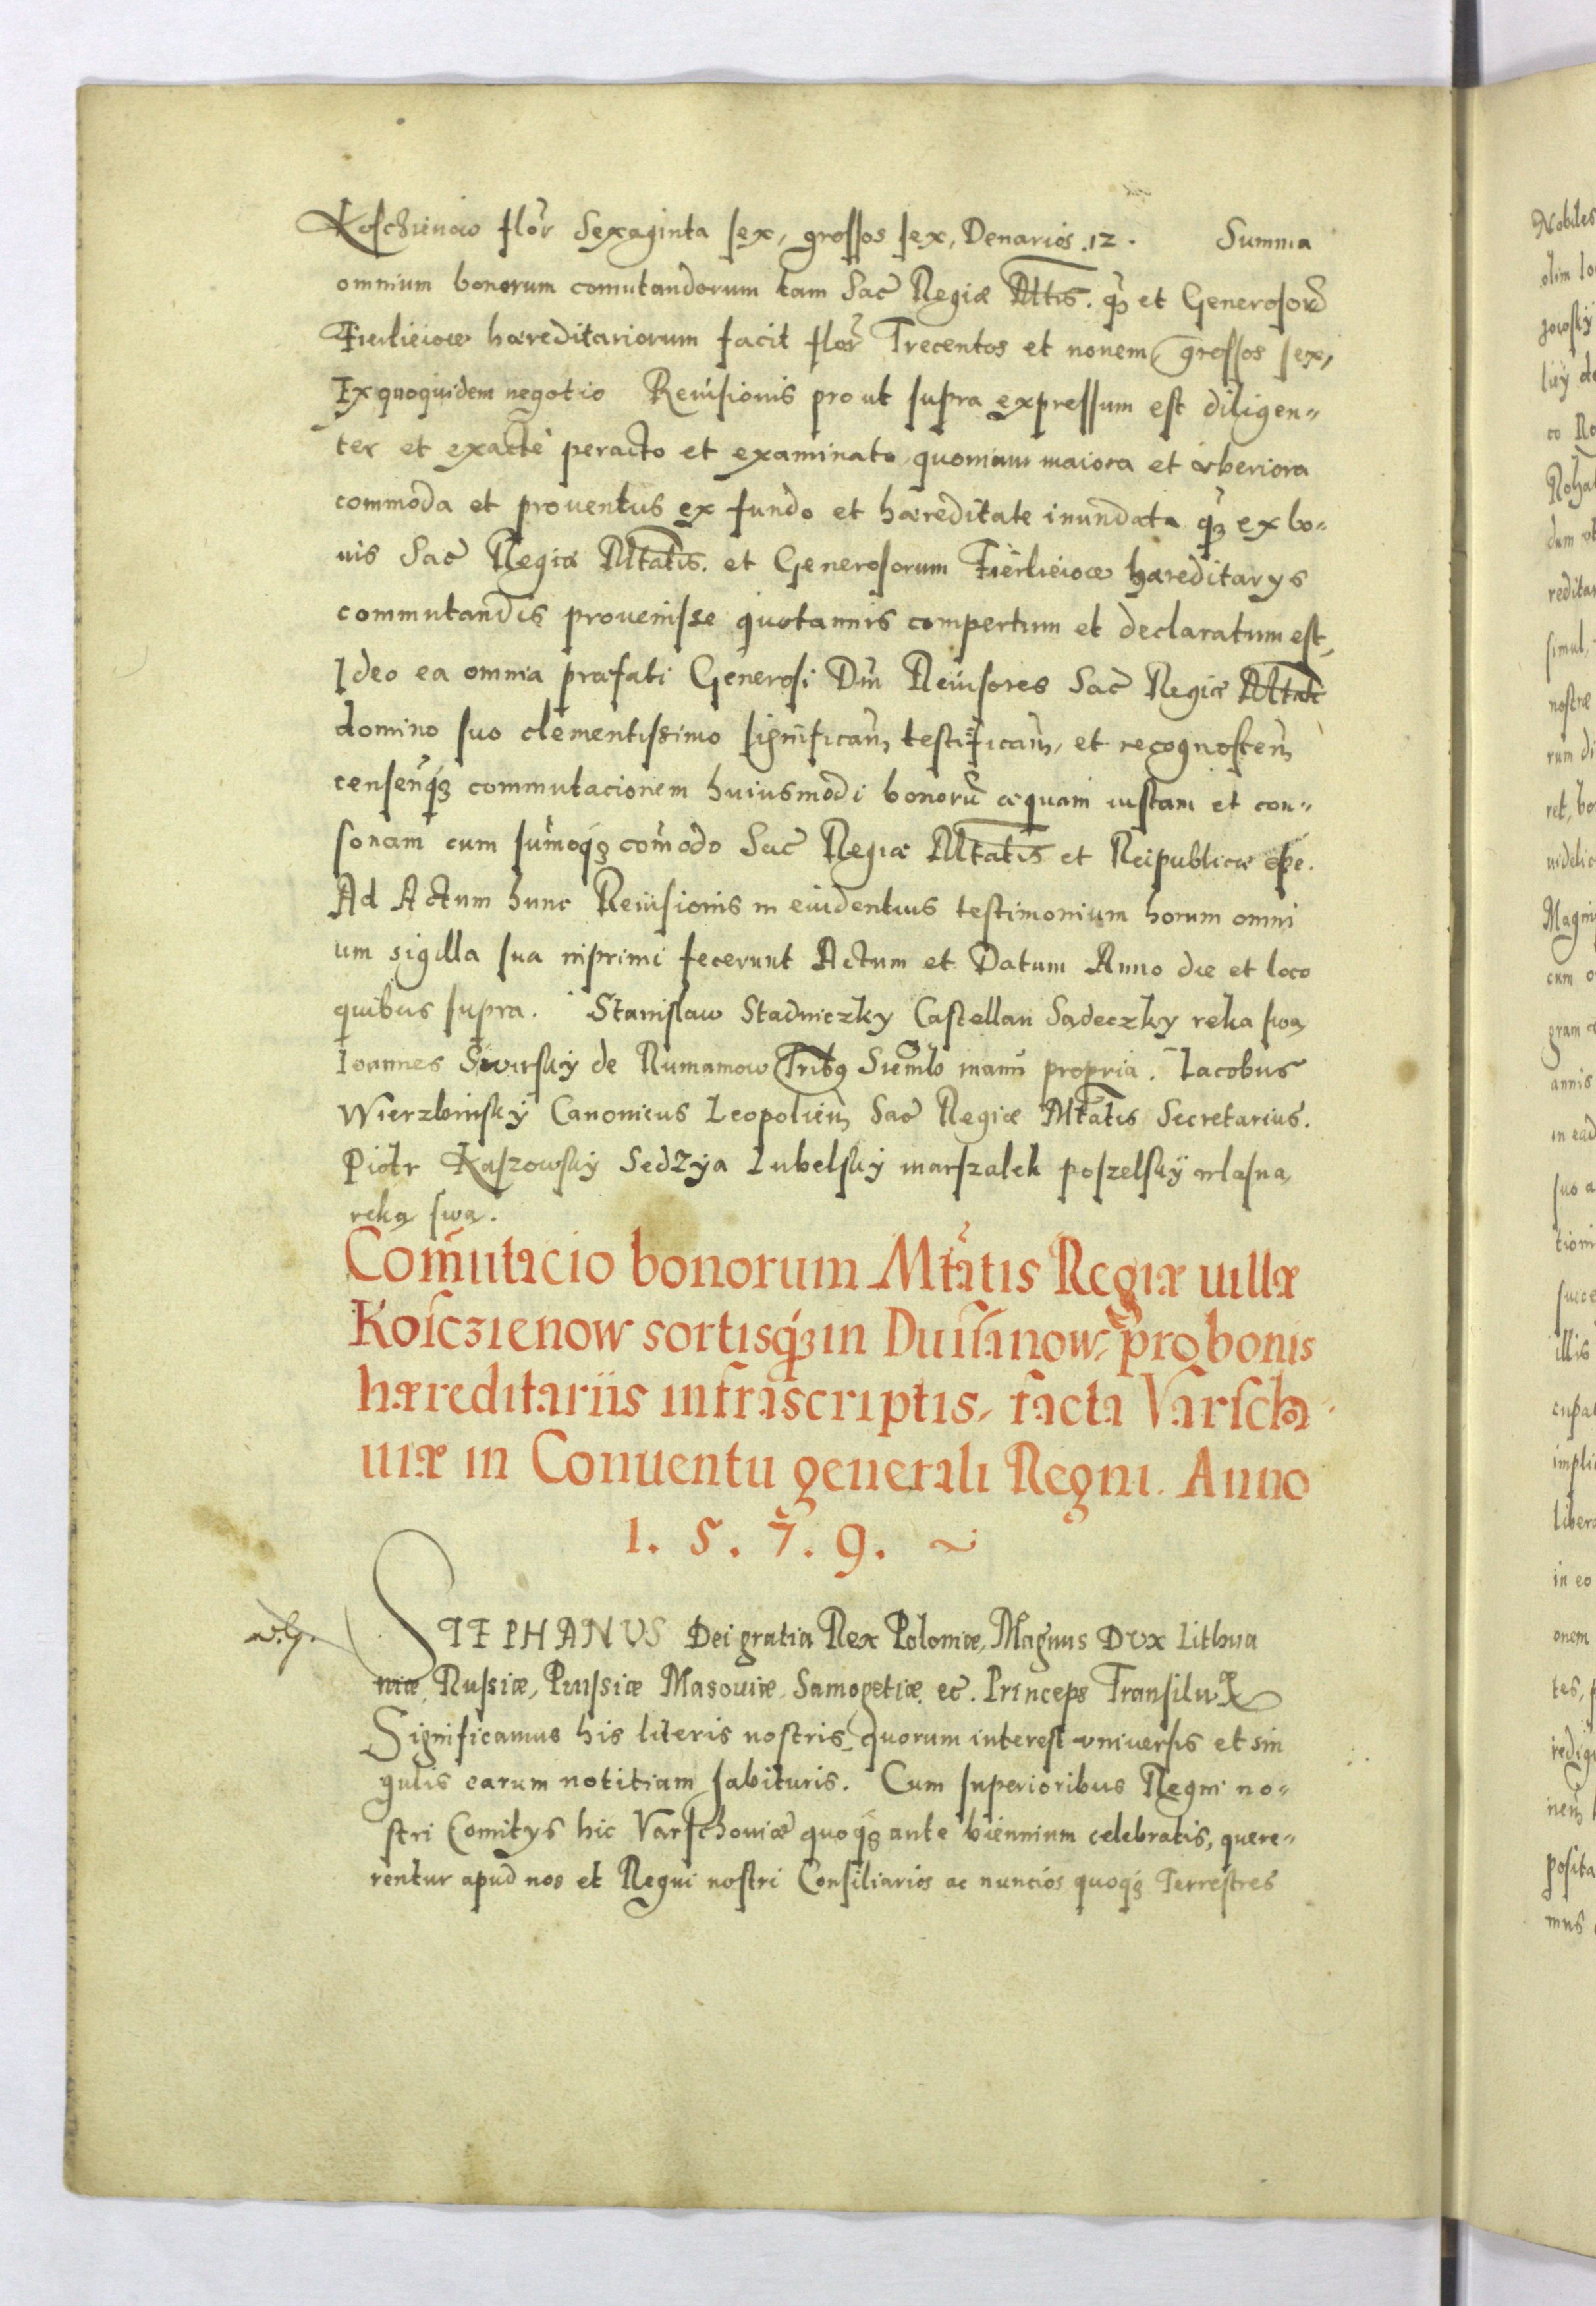 Koschienow flor̃ Sexaginta sex, grossos sex, Denarios .12. Summa
omnium bonorum comutandorum tam Sac̃ Regiæ Mtis. q̃ꝫ et Generosorũ
Firlieiow hæreditariorum facit flor̃ Trecentos et nonem grossos sex,
Ex quoquidem negotio Reuisionis pro ut supra expressum est diligen„
ter et exacte peracto et examinato quoniam maiora et vberiora
commoda et prouentus ex fundo et hæreditate inundata q̃ꝫ ex bo„
nis Sac̃ Regiæ Mtatis. et Generosorum Fierlieiow hæreditarys
commutandis prouenisse quotannis compertum et declaratum est,
Ideo ea omnia præfati Generosi Dn̄i Reuisores Sac̃ Regiæ Mtati
domino suo clementissimo significañ, testificañ, et recognosceñ
censenq́ꝫ commutacionem huiusmodi bonorũ æquam iustam et con„
sonam cum sum̃oq́ꝫ com̃odo Sac̃ Regiæ Mtatis et Reipublicæ esse.
Ad Actum hunc Reuisionis in euidentius testimonium horum omni
um sigilla sua inprimi fecerunt Actum et Datum Anno die et loco
quibus supra. Stanislaw Stadniczky Castellan Sądeczky reka swą
Ioannes Siwirsky de Rumamow Trib9 manu propria. Iacobus
Wierzbinsky Canonicus Leopolieñ Sac̃ Regiæ Mtatis Secretarius.
Piotr Kaszowsky Sedzya Lubelsky marszalek poszelsky wlasną
reką swą.
Com̃utacio bonorum Mtatis Regiæ uillæ
Kosczienow sortisq́ꝫ in Duisanow, pro bonis
hæreditariis infrascriptis, facta Varscho
uiæ in Conuentu generali Regni. Anno
1. 5. 7. 9.
STEPHANUS Dei gratia Rex Poloniæ, Magnus Dux Lithua
niæ, Russiæ, Prussiæ Masouiæ, Samogetiæ, ec̃. Princeps Transiluæ
Significamus his literis nostris quorum interest vniuersis et sin
gulis earum notitiam habituris. Cum superioribus Regni no„
stri Comitys hic Varschouiæ quoq́ꝫ ante biennium celebratis, quere„
rentur apud nos et Regni nostri Consiliarios ac nuncios quoq́ꝫ Terrestres